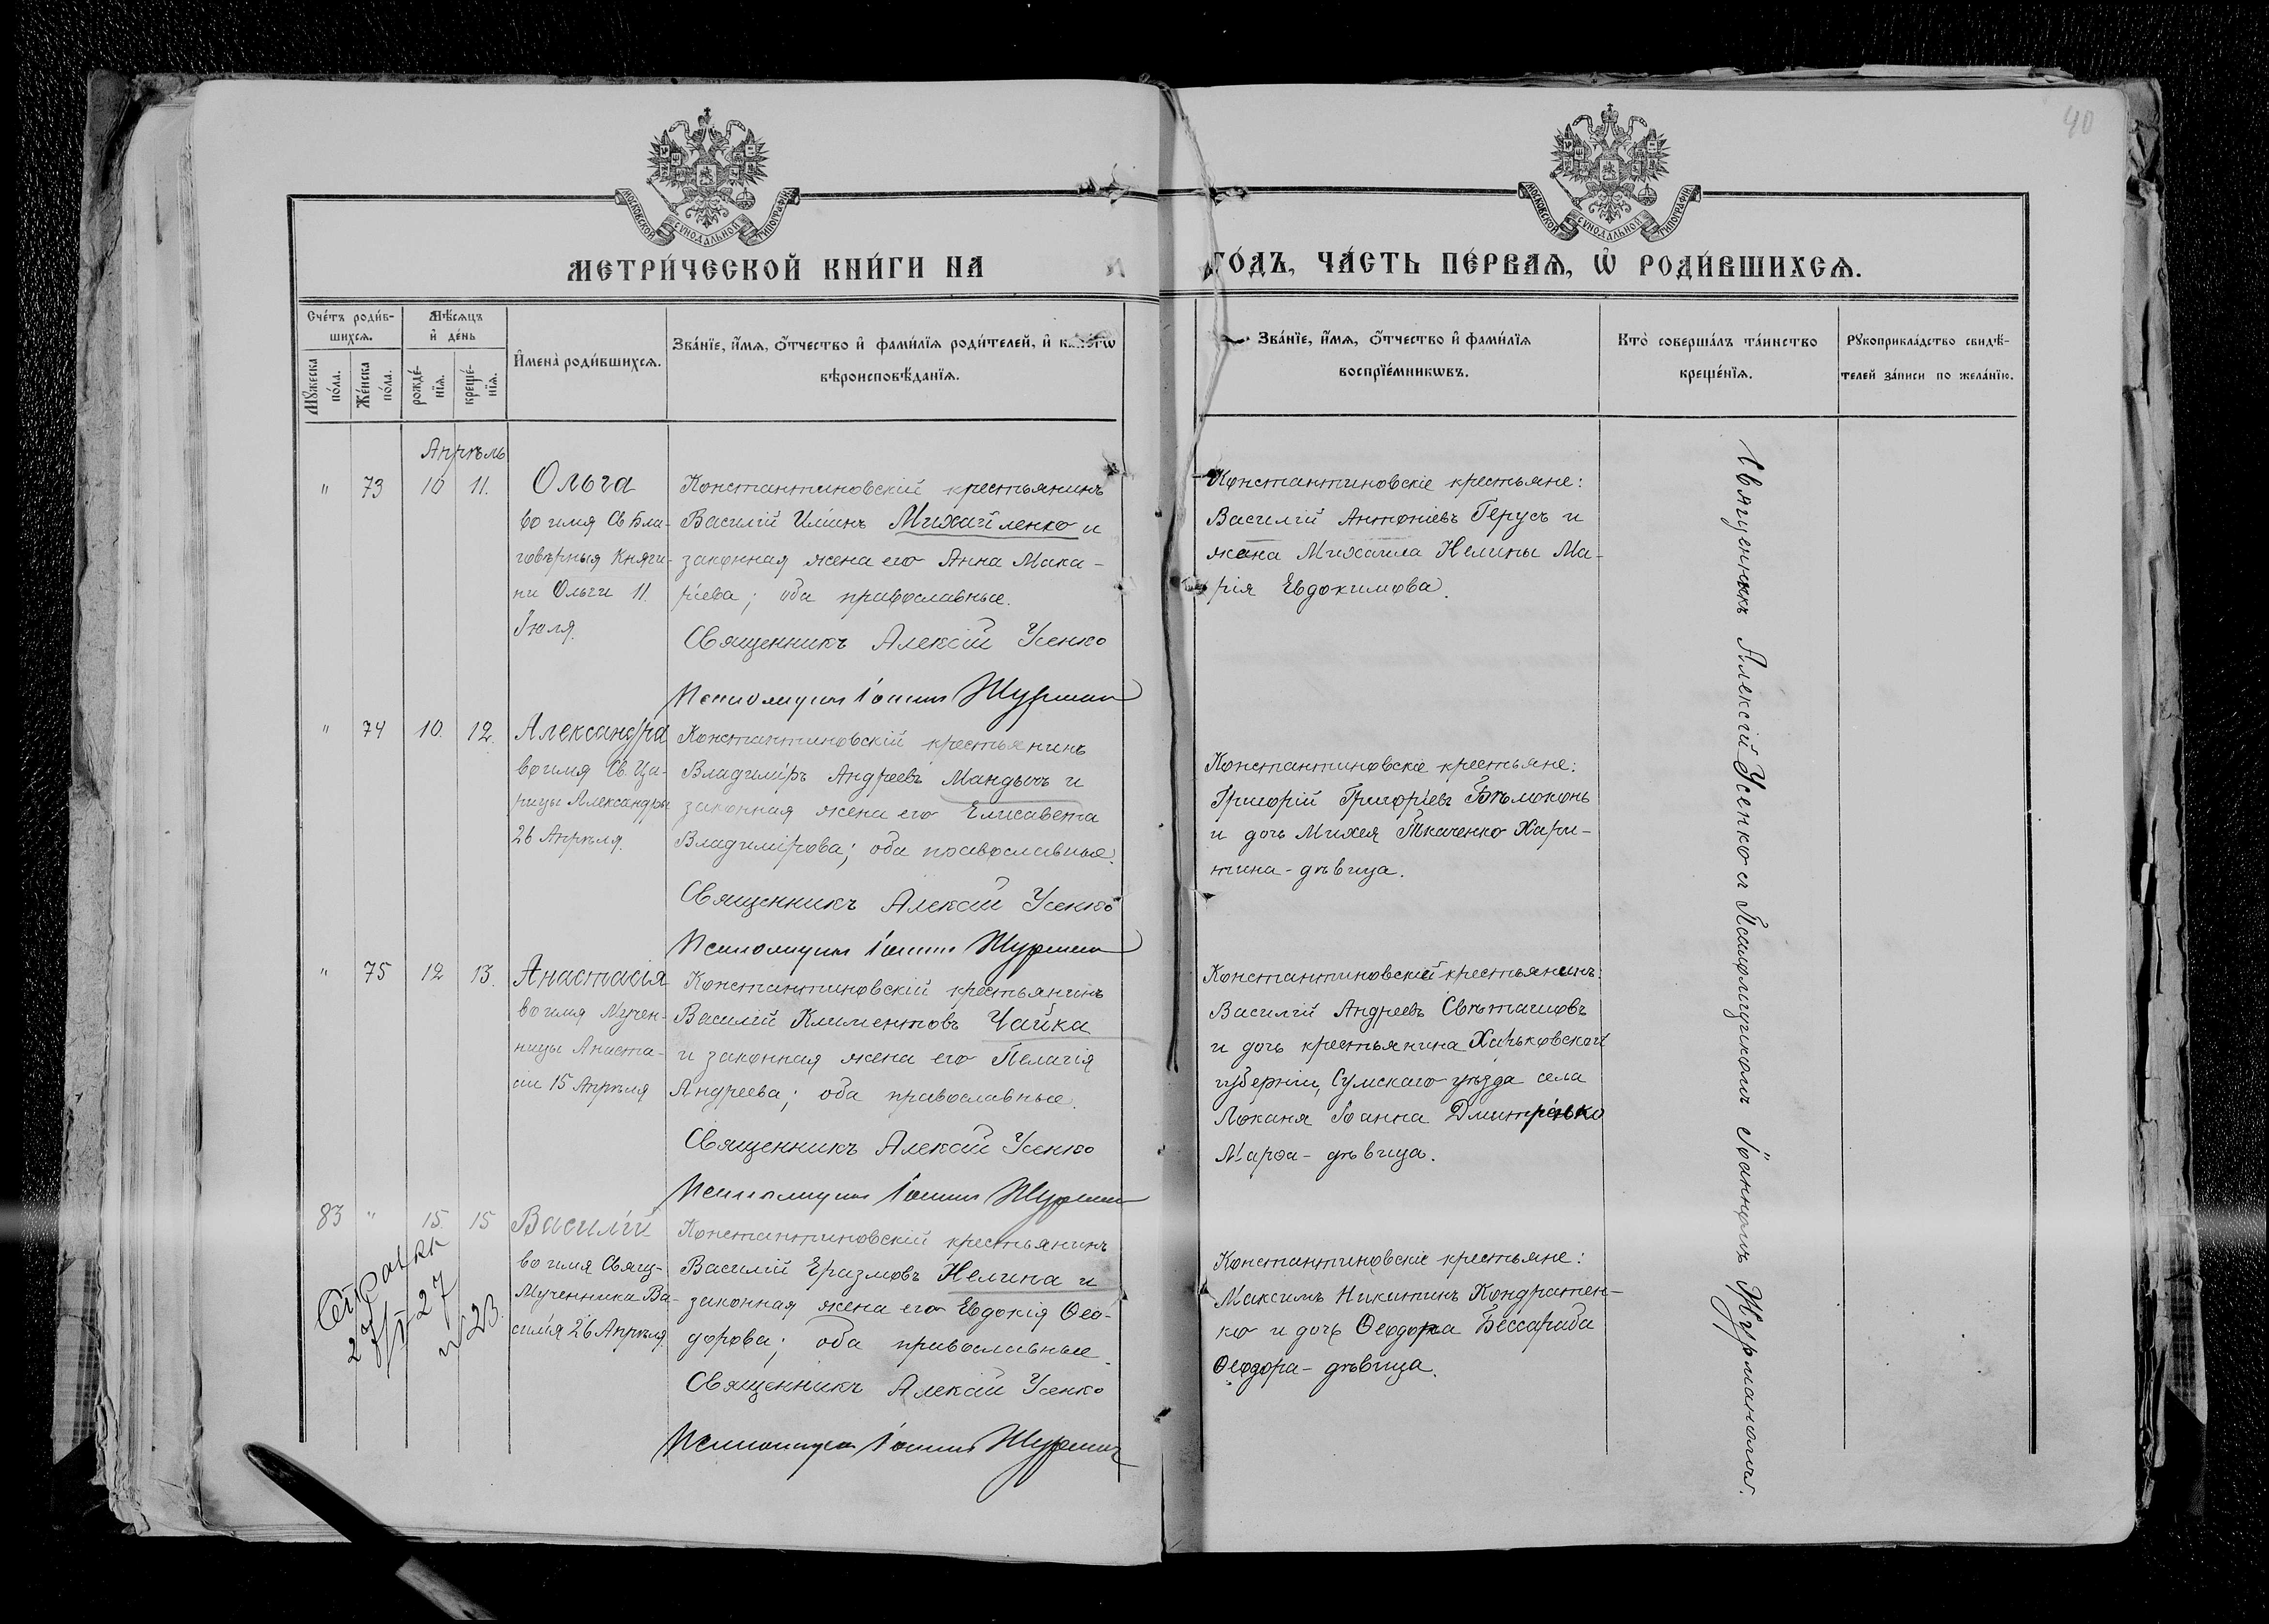 40
МОСКОВСКОЙ СѴНОДАЛЬНОЙ ТИПОГРАФІИ
МОСКОВСКОЙ СѴНОДАЛЬНОЙ ТИПОГРАФІИ
МЕТРИ́ЧЕСКОЙ КНИ́ГИ НА ГО́ДЪ, ЧА́СТЬ ПЕ́РВАѦ, Ѡ҆ РОДИ́ВШИХСѦ.
Сче́тъ роди́в-
шихсѧ.
Мꙋ́жеска по́ла.
Же́нска по́ла.
Мѣ́сѧцъ
и҆ де́нь
рожде́-
нїѧ.
креще́-
нїѧ.
И҆мена̀ роди́вшихсѧ.
Зва́нїе, и҆́мѧ, ѻ҆́тчество и҆ фами́лїѧ роди́телей, и҆
вѣроисповѣ́данїѧ.
Зва́нїе, и҆́мѧ, ѻ҆́тчество и҆ фами́лїѧ
воспрїе́мникѡвъ.
Кто̀ соверша́лъ та́инство
креще́нїѧ.
Рꙋкоприкла́дство свидѣ́-
телей за́писи по жела́нїю.
Апрѣль
" 73 10 11.
Ольга
во имя Св Бла-
говѣрныя Княги-
ни Ольги 11.
Іюля.
Константиновскій крестьянинъ
Василій Ильинъ Михайленко и
законная жена его Анна Мака-
ріева; оба православные.
Священникъ Алексій Усенко
Псаломщикъ Іоаннъ Журманъ
Константиновскіе крестьяне:
Василій Антоніевъ Герусъ и
жена Михаила Нелипы Ма-
рія Евдокимова.
" 74 10. 12.
Александра
во имя Св. Ца-
рицы Александры
26 Апрѣля.
Константиновскій крестьянинъ
Владиміръ Андреевъ Мандычъ и
законная жена его Елисавета
Владимірова; оба православные.
Священникъ Алексій Усенко
Псаломщикъ Іоаннъ Журманъ
Константиновскіе крестьяне:
Григорій Григоріевъ Бѣлоконь
и дочь Михея Ткаченко Хари-
тина - дѣвица.
" 75 12 13.
Анастасія
во имя Мучен-
ницы Анаста-
сіи 15 Апрѣля
Константиновскій крестьянинъ
Василій Климентовъ Чайка
и законная жена его Пелагія
Андреева; оба православные.
Священникъ Алексій Усенко
Псаломщикъ Іоаннъ Журманъ
Константиновскій крестьянинъ:
Василій Андреевъ Свѣташовъ
и дочь крестьянина Харьковской
губерніи, Сумскаго уѣзда села
Локаня Іоанна Дмитренко
Марѳа - дѣвица.
83 " 15. 15
Василій
во имя Свящ-
Мученника Ва-
силія 26 Апрѣля.
Константиновскій крестьянинъ
Василій Еразмовъ Нелипа и
законная жена его Евдокія Ѳео-
дорова; оба православные.
Священникъ Алексій Усенко
Псаломщикъ Іоаннъ Журманъ
Константиновскіе крестьяне:
Максимъ Никитинъ Кондратен-
ко и дочь Ѳеодора Бессараба
Ѳеодора - дѣвица.
Священникъ Алексій Усенко съ Псаломщикомъ Іоанномъ Журманомъ.